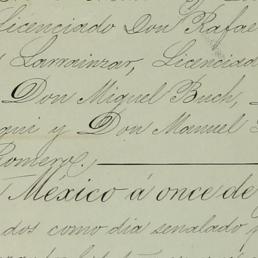 Licenciado Don Rafae
Larrainzar, Licenciad
Don Miguel Buch,
qui y Don Manuel
Romero,
México á once de
dos como dia señalado p